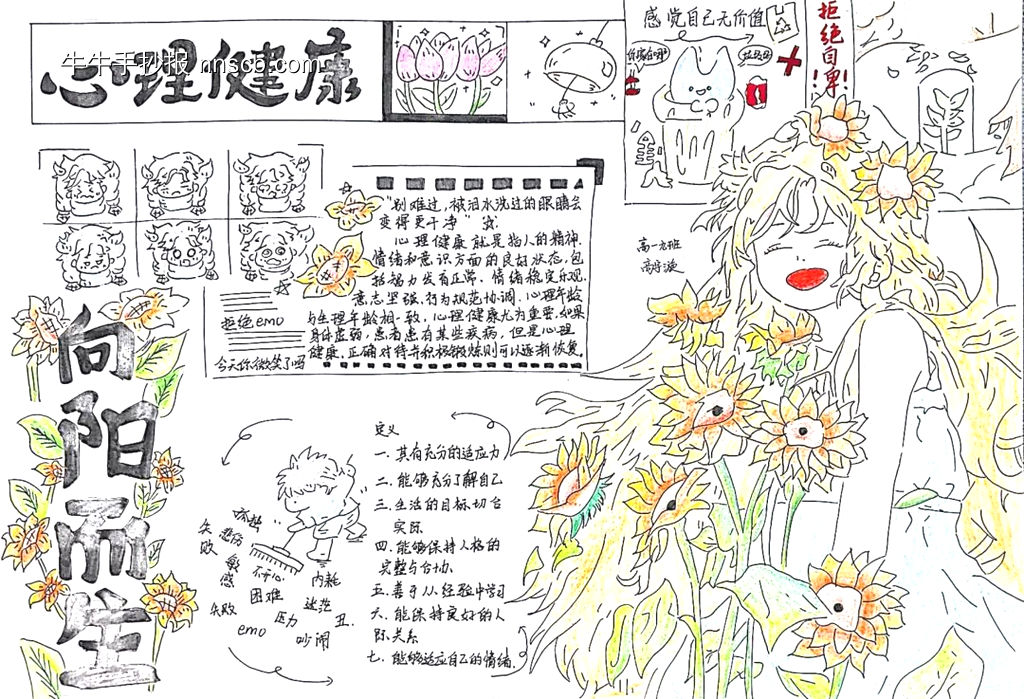 心理健康
牛牛手抄报 nnscb.com
感觉自己无价值
拒绝自卑!
"别难过,被泪水洗过的眼睛会
变得更干净"
心理健康就是指人的精神、
情绪和意识方面的良好状态,包
括智力发育正常,情绪稳定乐观,
意志坚强,行为规范协调,心理年龄
与生理年龄相一致,心理健康尤为重要,如果
身体虚弱,患者患有某些疾病,但是心理
健康,正确对待并积极锻炼则可以逐渐恢复。
拒绝emo
今天你微笑了吗
高一九班
向阳而生
定义
一.具有充分的适应力
二.能够充分了解自己
三.生活的目标切合
实际
四.能够保持人格的
完整与合协
五.善于从经验中学习
六.能保持良好的人
际关系
七.能够适应自己的情绪.
悲伤
失败
敏感
不开心
内耗
困难
迷茫
失败
压力
丑
emo
吵闹